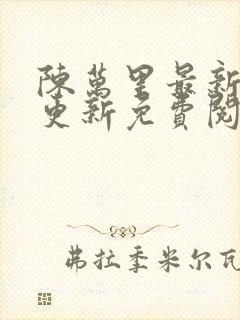 陳萬里最新
更新免費閱
弗拉季米尔瓦